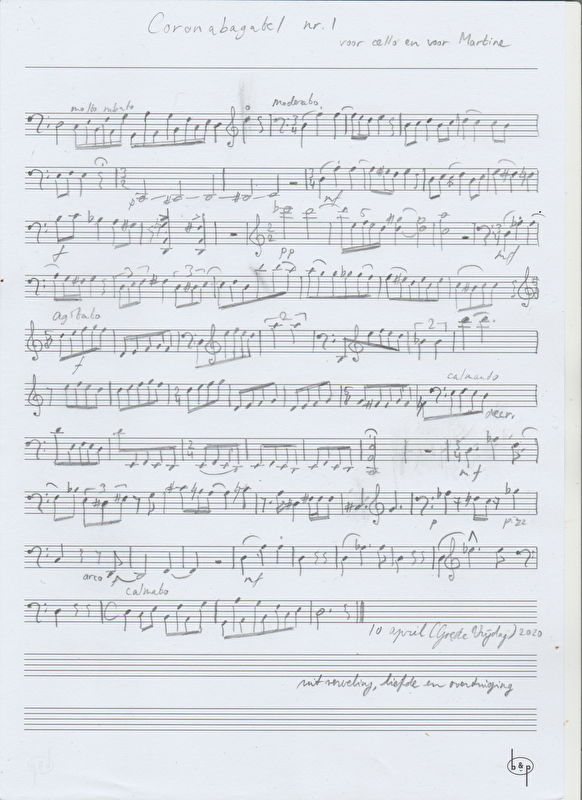 Coronabagatel nr. 1
voor cello en voor Martine
molto rubato moderato
p mf
f pp mf
agitato
f
calmando
decr.
mf
p pizz
arco p mf
calmato
10 april (Goede Vrijdag) 2020
uit verveling, liefde en overtuiging
b&p